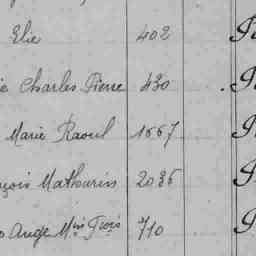 Elie 402
Charles Pierre 430
Marie Raoul 1667
Mathurin 2036
Ange Min Frois 710